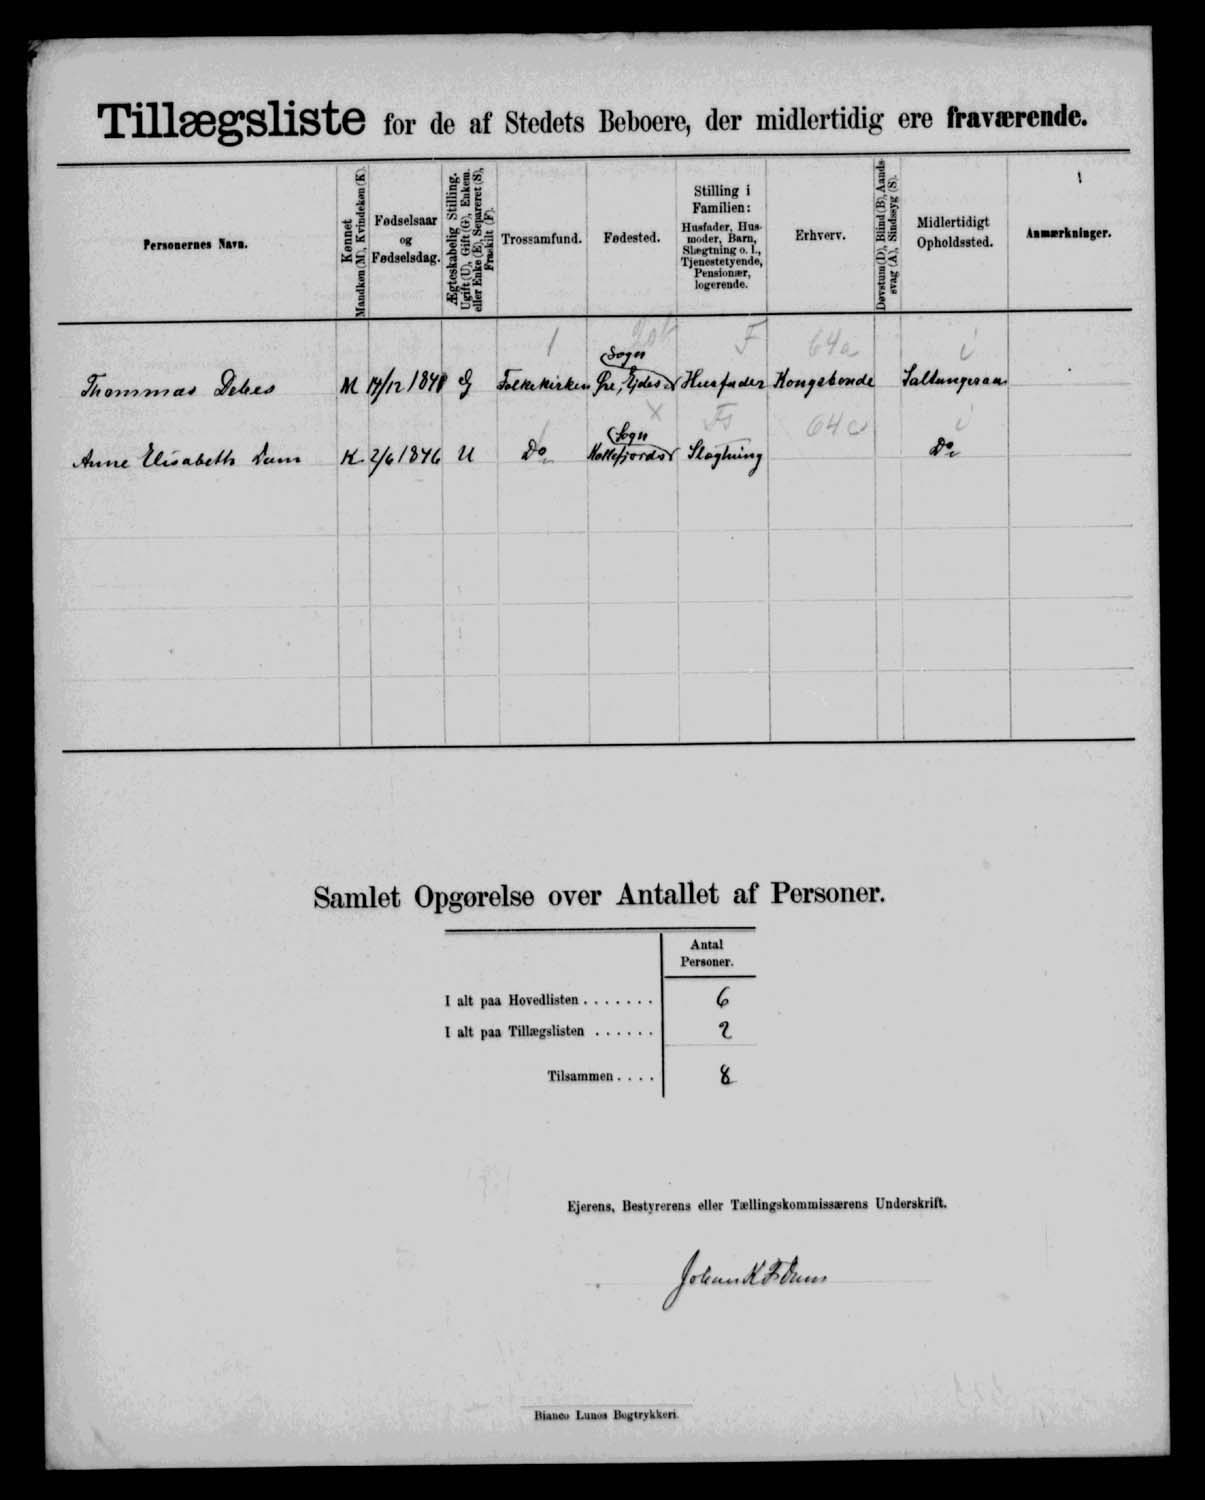 Tillægsliste for de af Stedets Beboere, der midlertidig ere fraværende.
Personernes Navn.
Kønnet
Mandkøn (M), Kvindekøn (K).
Fødselsaar
og
Fødselsdag.
Ægteskabelig Stilling.
Ugift (U), Gift (G), Enkem.
eller Enke (E), Separeret (S),
Fraskilt (F).
Trossamfund.
Fødested.
Stilling i
Familien:
Husfader, Hus-
moder, Barn,
Slægtning o. l.,
Tjenestetyende,
Pensionær,
logerende.
Erhverv.
Døvstum (D), Blind (B), Aands-
svag (A), Sindssyg (S).
Midlertidigt
Opholdssted.
Anmærkninger.
1 F 64a i
Sogn
Thommas Debes M 14/12 1848 G Folkekirken Ejde Husfader Kongsbonde
x Fs 64a i
1 Sogn
Anne Elisabeth Dam K 2/6 1846 U Do Slægtning Do
Samlet Opgørelse over Antallet af Personer.
Antal
Personer.
I alt paa Hovedlisten . . . . . . . 6
I alt paa Tillægslisten . . . . . . 2
Tilsammen . . . . 8
Ejerens, Bestyrerens eller Tællingskommissærens Underskrift.
Johan K F Dam
Bianco Lunos Bogtrykkeri.